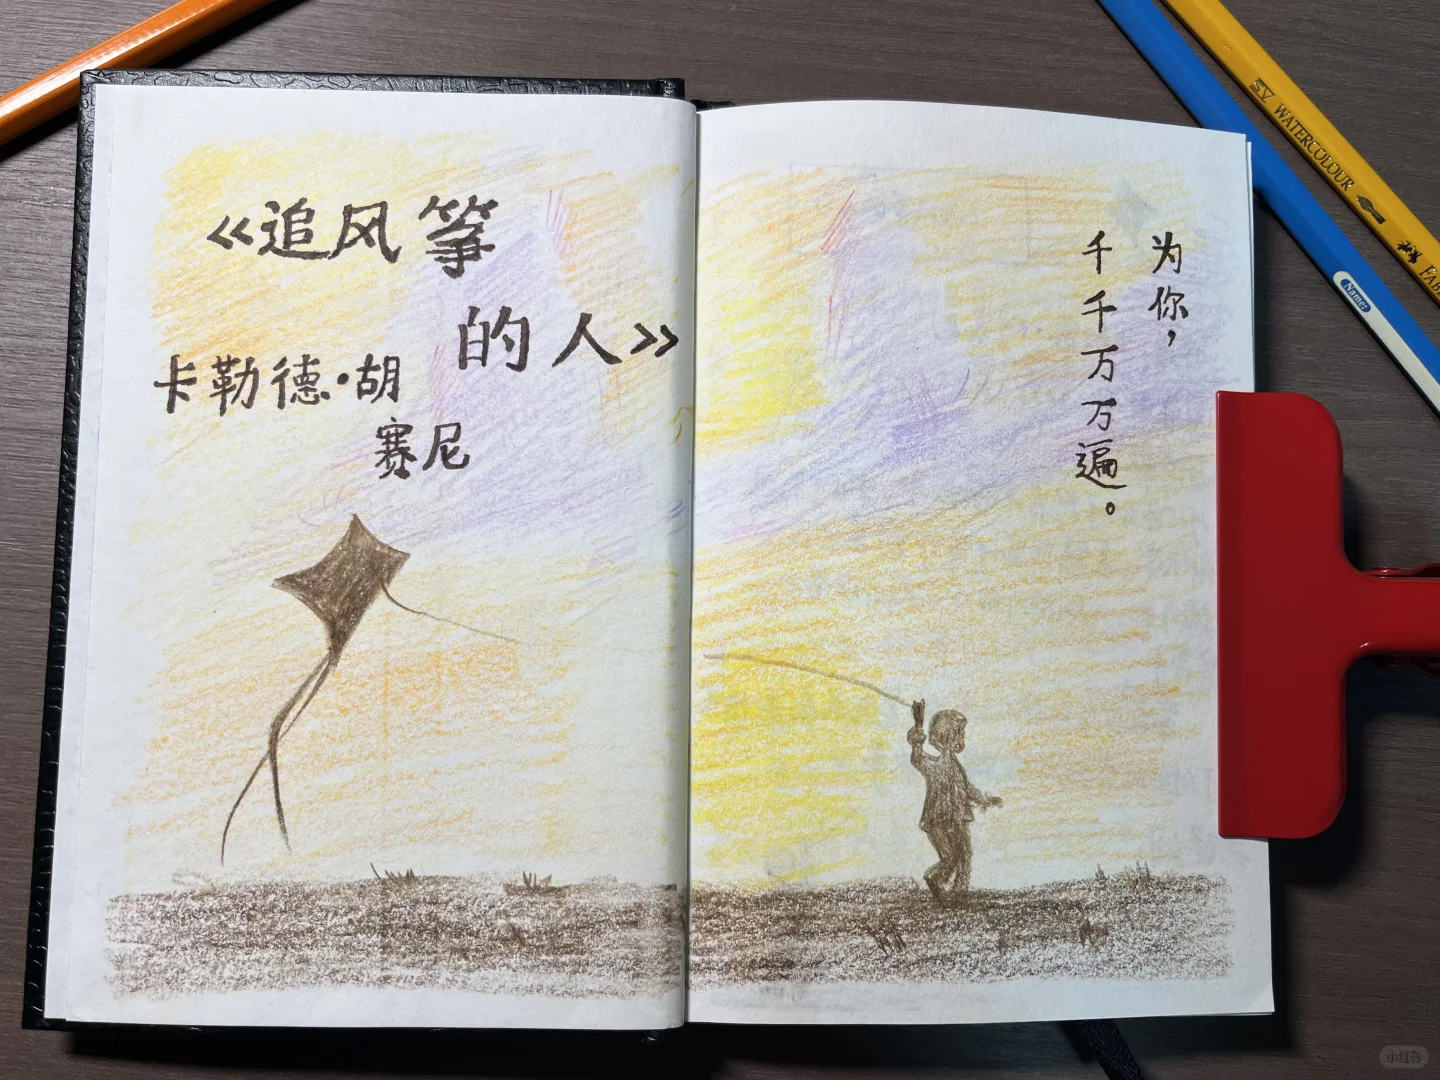 《追风筝
的人》
卡勒德·胡
赛尼
为你，
千千万万遍。
WATERCOLOUR
Name:
小红书